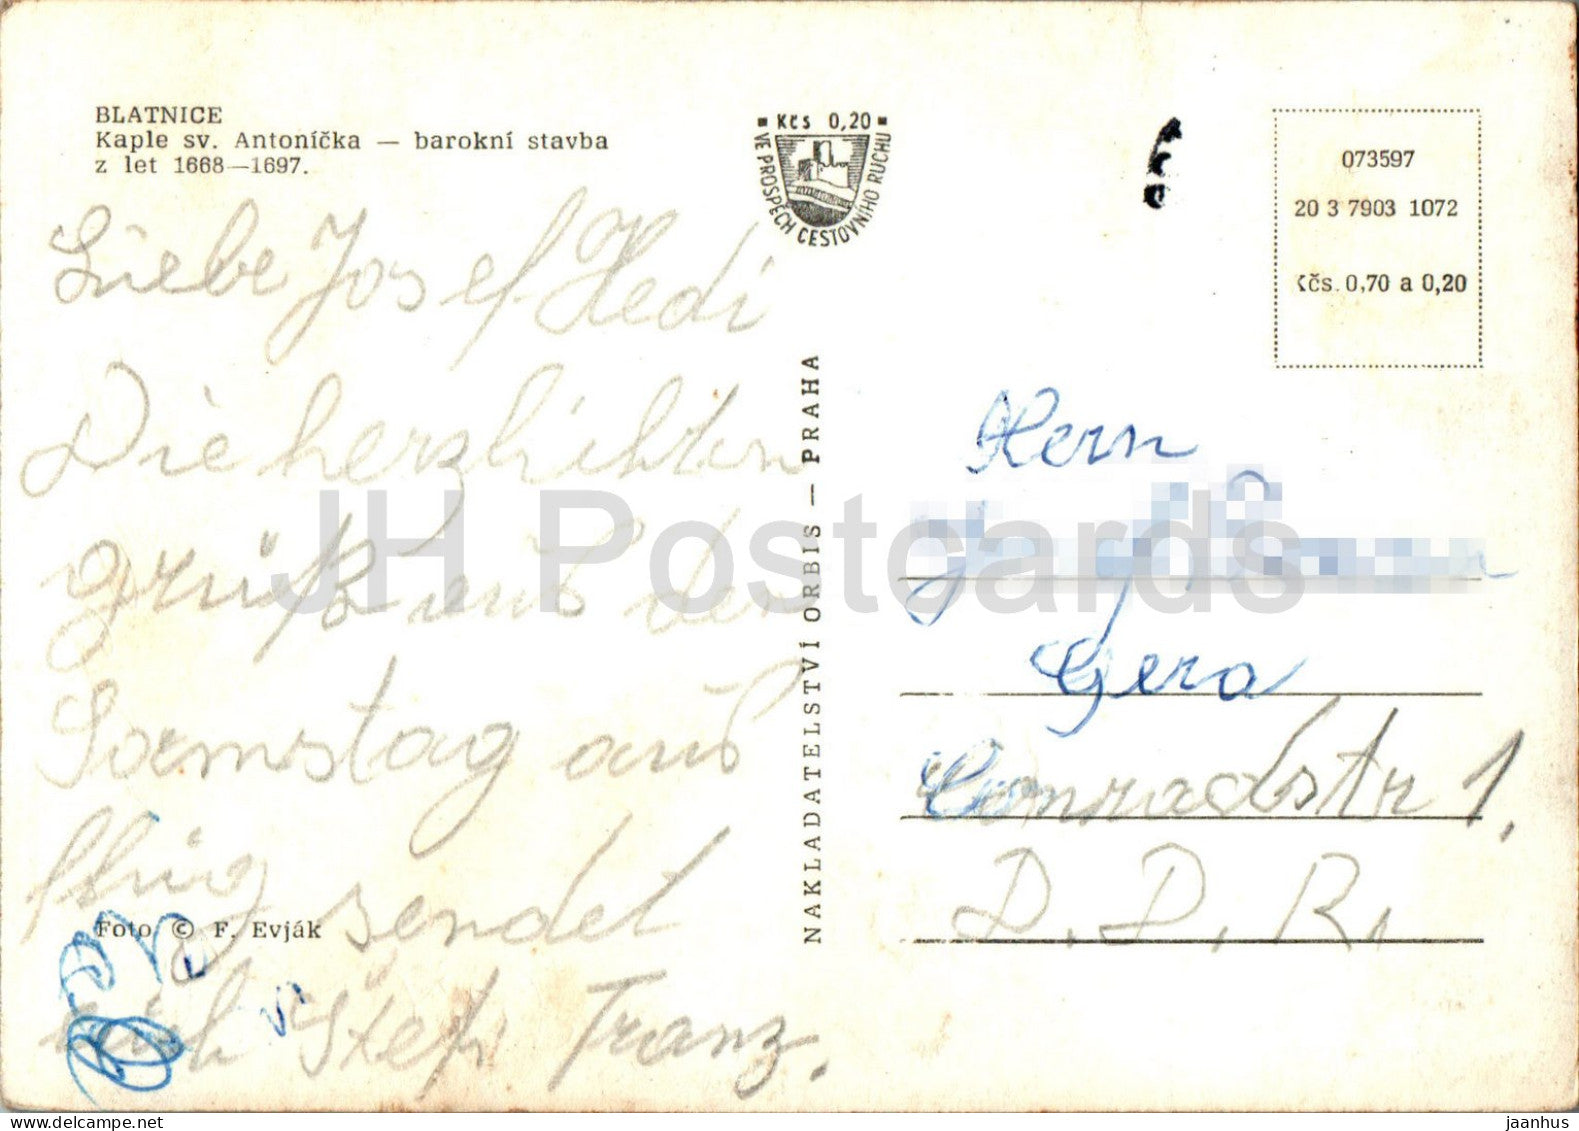 BLATNICE
Kaple sv. Antoníčka — barokní stavba
z let 1668—1697.
Kčs 0,20
VE PROSPĚCH CESTOVNÍHO RUCHU
073597
20 3 7903 1072
Kčs. 0,70 a 0,20
Liebe Josef Hedi
Die herzlichsten
grüß aus der
Sonnstag aus
sendet
Foto © F. Evják
euch Stefi Franz.
NAKLADATELSTVÍ ORBIS — PRAHA
Hern
Gera
Conradstr 1.
D. D. R.
JH Postcards
www.delcampe.net
jaanhus